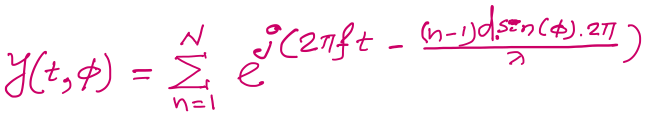 y(t,φ) = Σ_{n=1}^{N} e^{j(2πft - \frac{(n-1)d.sin(φ).2π}{λ})}